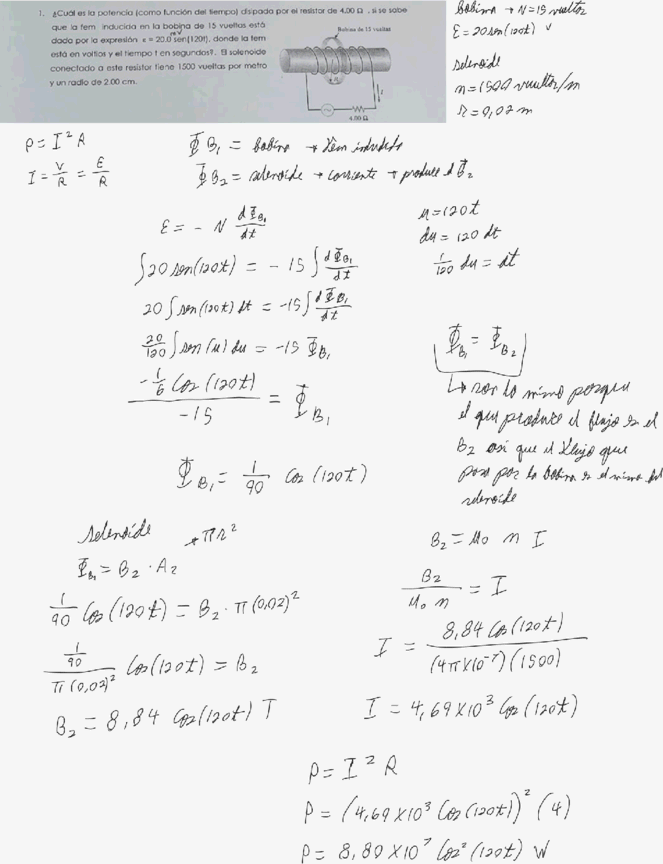 1. ¿Cuál es la potencia (como función del tiempo) disipada por el resistor de 4.00 Ω , si se sabe
que la fem inducida en la bobina de 15 vueltas está
dada por la expresión ε = 20.0 sen(120t), donde la fem
está en voltios y el tiempo t en segundos?. El solenoide
conectado a este resistor tiene 1500 vueltas por metro
y un radio de 2.00 cm.
Bobina de 15 vueltas
4.00 Ω
Bobina → N=15 vueltas
E = 20 sen(120t) V
solenoide
n = 1500 vueltas/m
r = 0,02 m
P = I² R
I = V/R = E/R
Φ B₁ = bobina → fem inducida
Φ B₂ = solenoide → corriente → produce el B₂
E = - N dΦB₁/dt
∫20 sen(120t) = - 15 ∫ dΦB₁/dt
20 ∫ sen(120t) dt = -15 ∫ dΦB₁/dt
20/120 ∫ sen(u) du = -15 ΦB₁
-1/6 Cos(120t) / -15 = ΦB₁
ΦB₁ = 1/90 Cos(120t)
u = 120t
du = 120 dt
1/120 du = dt
ΦB₁ = ΦB₂
↳ son lo mismo porque
el que produce el flujo es el
B₂ asi que el flujo que
pasa por la bobina es el mismo del
solenoide
solenoide → πr²
ΦB₁ = B₂ · A₂
1/90 Cos(120t) = B₂ · π(0,02)²
1/90 / π(0,02)² Cos(120t) = B₂
B₂ = 8,84 Cos(120t) T
B₂ = μ₀ n I
B₂ / μ₀ n = I
I = 8,84 Cos(120t) / (4π×10⁻⁷)(1500)
I = 4,69×10³ Cos(120t)
P = I² R
P = (4,69×10³ Cos(120t))² (4)
P = 8,80×10⁷ Cos²(120t) W